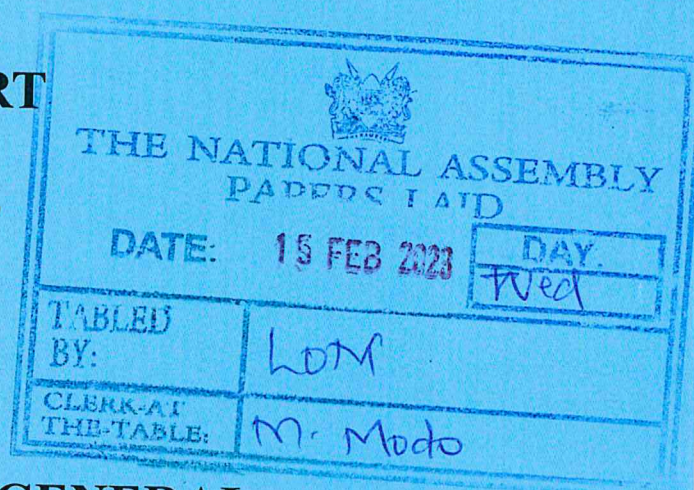 RT
THE NATIONAL ASSEMBLY
PAPERS LAID
DATE: 15 FEB 2023
DAY.
Wed
TABLED
BY:
LOM
CLERK-AT
THE-TABLE:
M. Modo
GENERAL